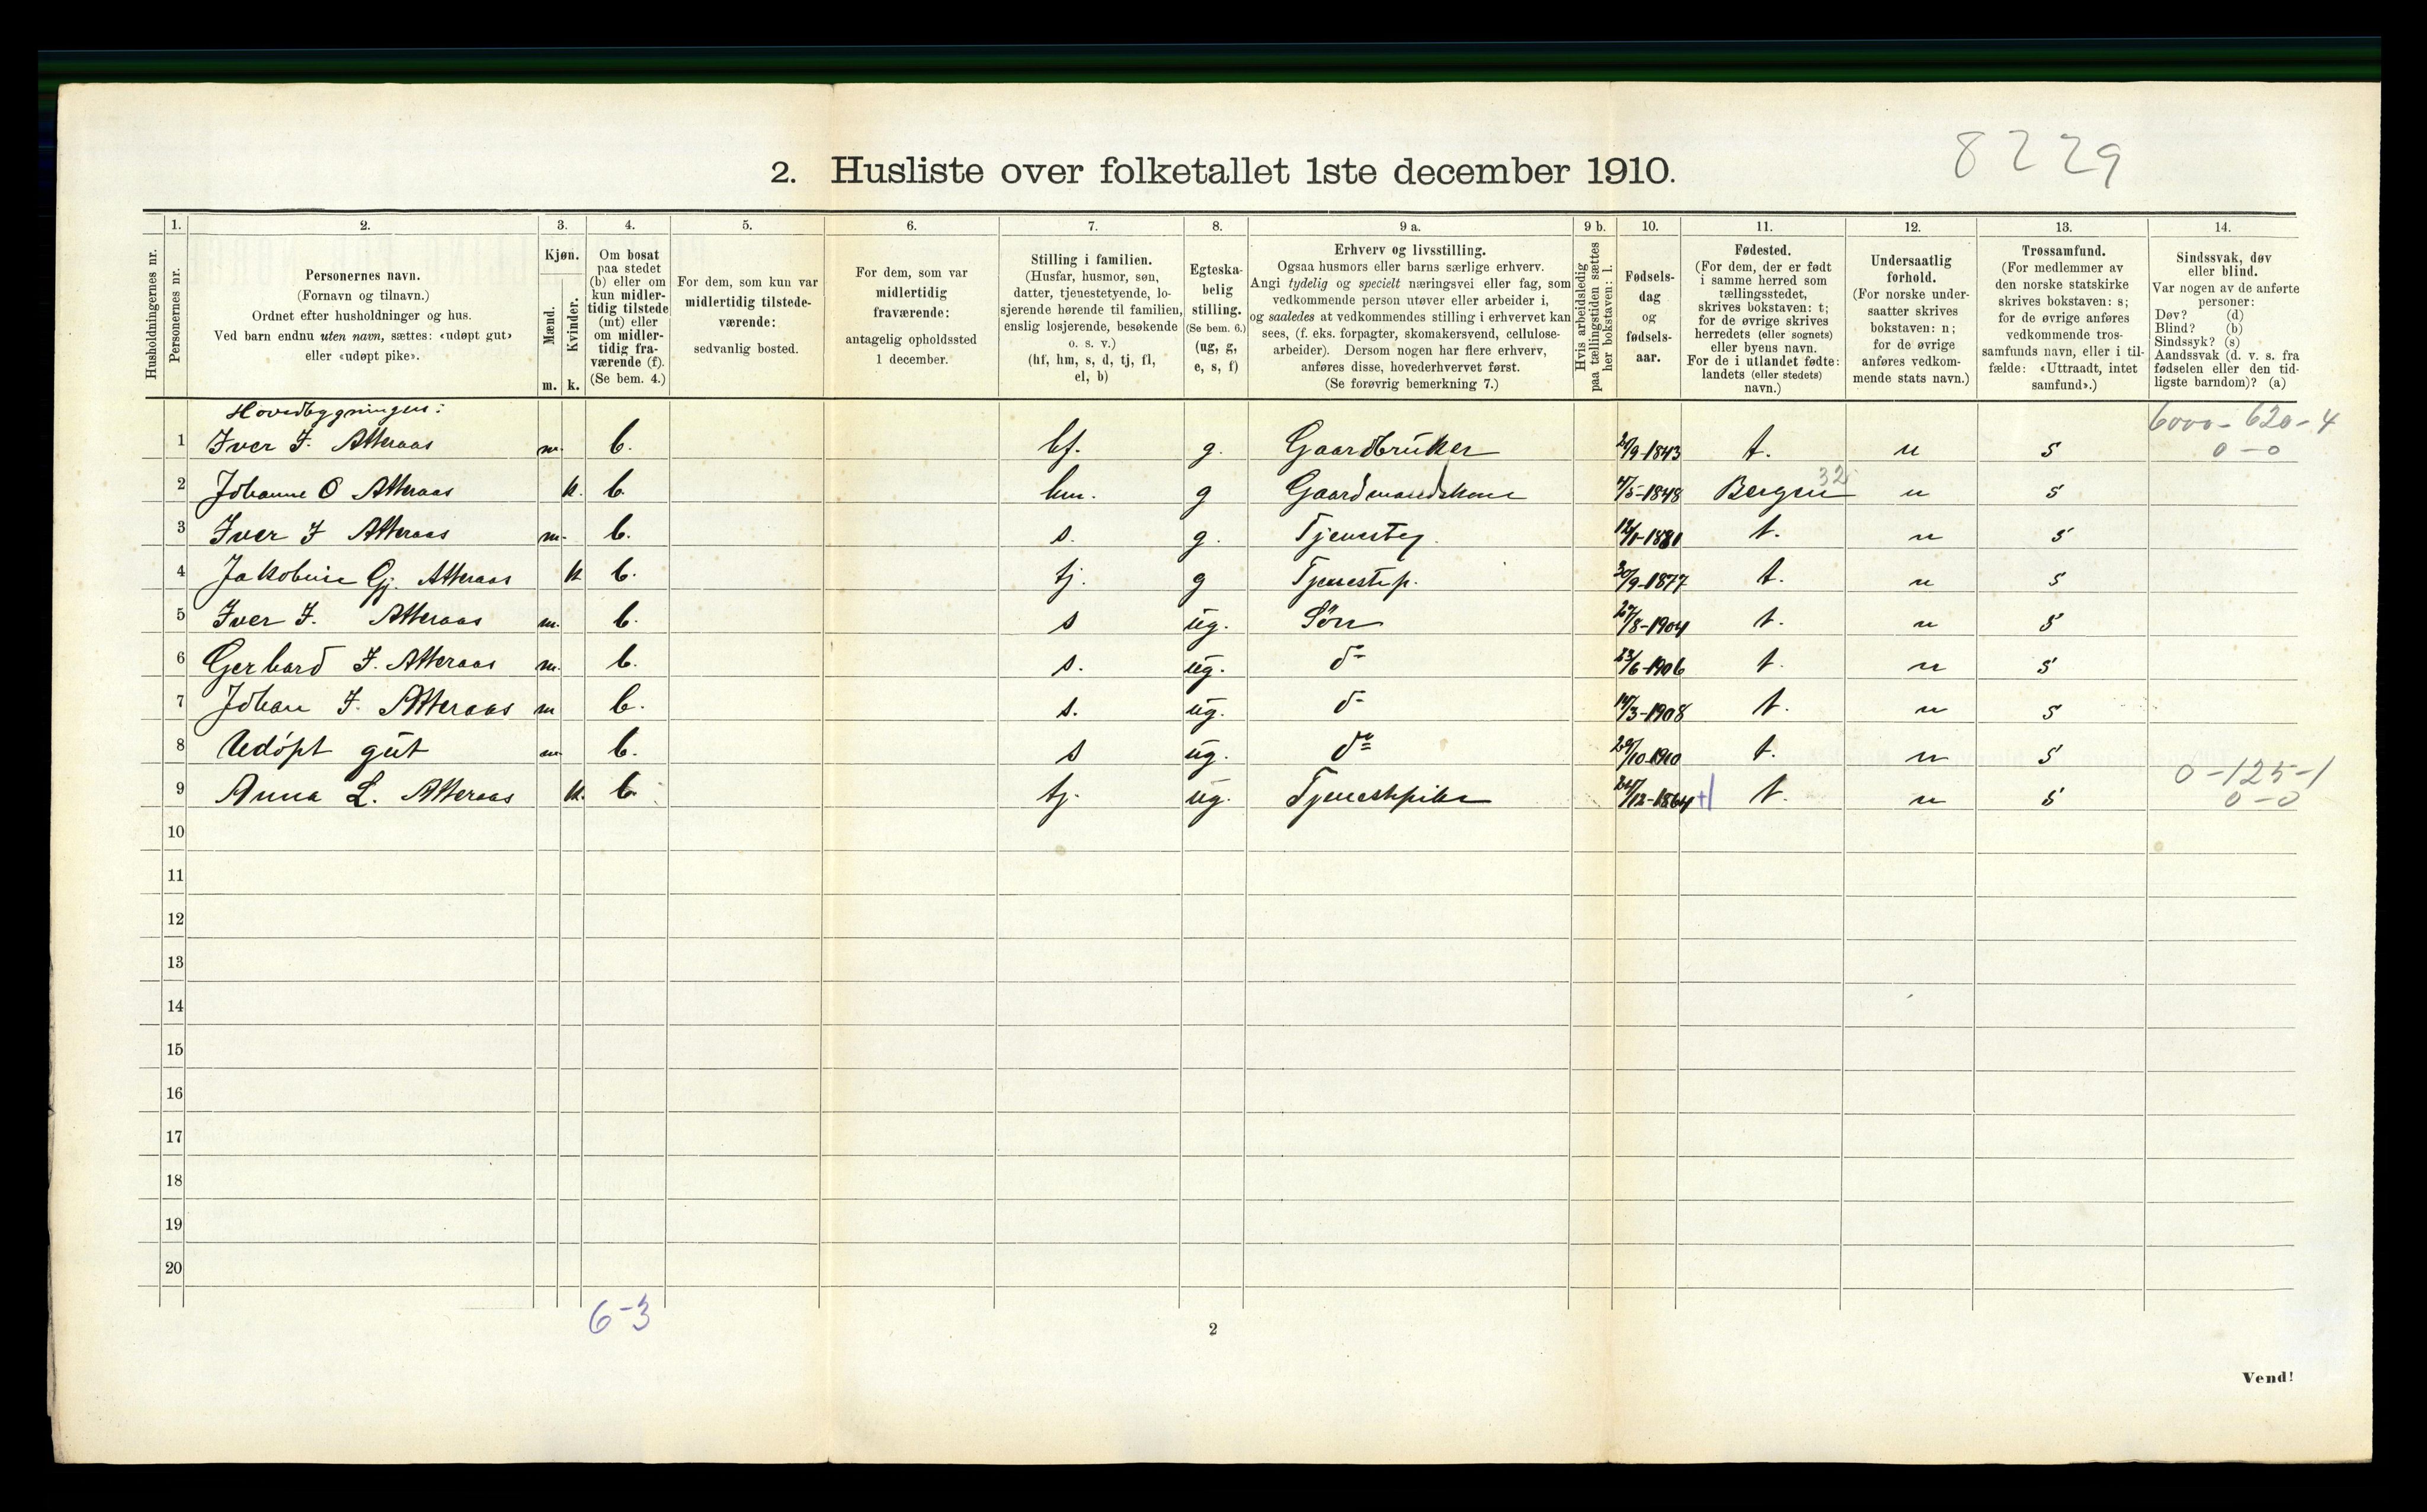 8229
2. Husliste over folketallet 1ste december 1910.
Husholdningernes nr.
1.
Personernes nr.
2.
Personernes navn.
(Fornavn og tilnavn.)
Ordnet efter husholdninger og hus.
Ved barn endnu uten navn, sættes: «udøpt gut»
eller «udøpt pike».
3.
Kjøn.
Mænd.
Kvinder.
m. k.
4.
Om bosat
paa stedet
(b) eller om
kun midler-
tidig tilstede
(mt) eller
om midler-
tidig fra-
værende (f).
(Se bem. 4.)
5.
For dem, som kun var
midlertidig tilstede-
værende:
sedvanlig bosted.
6.
For dem, som var
midlertidig
fraværende:
antagelig opholdssted
1 december.
7.
Stilling i familien.
(Husfar, husmor, søn,
datter, tjenestetyende, lo-
sjerende hørende til familien,
enslig losjerende, besøkende
o. s. v.)
(hf, hm, s, d, tj, fl,
el, b)
8.
Egteska-
belig
stilling.
(Se bem. 6.)
(ug, g,
e, s, f)
9 a.
Erhverv og livsstilling.
Ogsaa husmors eller barns særlige erhverv.
Angi tydelig og specielt næringsvei eller fag, som
vedkommende person utøver eller arbeider i,
og saaledes at vedkommendes stilling i erhvervet kan
sees, (f. eks. forpagter, skomakersvend, cellulose-
arbeider). Dersom nogen har flere erhverv,
anføres disse, hovederhvervet først.
(Se forøvrig bemerkning 7.)
9 b.
Hvis arbeidsledig
paa tællingstiden sættes
her bokstaven: l.
10.
Fødsels-
dag
og
fødsels-
aar.
11.
Fødested.
(For dem, der er født
i samme herred som
tællingsstedet,
skrives bokstaven: t;
for de øvrige skrives
herredets (eller sognets)
eller byens navn.
For de i utlandet fødte:
landets (eller stedets)
navn.)
12.
Undersaatlig
forhold.
(For norske under-
saatter skrives
bokstaven: n;
for de øvrige
anføres vedkom-
mende stats navn.)
13.
Trossamfund.
(For medlemmer av
den norske statskirke
skrives bokstaven: s;
for de øvrige anføres
vedkommende tros-
samfunds navn, eller i til-
fælde: «Uttraadt, intet
samfund».)
14.
Sindssvak, døv
eller blind.
Var nogen av de anførte
personer:
Døv? (d)
Blind? (b)
Sindssyk? (s)
Aandssvak (d. v. s. fra
fødselen eller den tid-
ligste barndom)? (a)
Hovedbygningen:
6000-620-4
1 Iver I. Atteraas m. b. hf. g. Gaardbruker /9-1843 t. n s 0-0
2 Johanne O Atteraas k. b. hm. g Gaardmandskone /5-1848 Bergen 32 n s
3 Iver I Atteraas m. b. s. g. Tjenesteg. t. n s
4 Jakobine Gj. Atteraas k b. tj. g Tjenestep. 30/9-1877 t. n s
5 Iver I. Atteraas m. b. s ug. Sön 27/8-1904 t. n s
6 Gerhard I. Atteraas m. b. s. ug. do 23/6-1906 t. n s
7 Johan I. Atteraas m b. s. ug. do /3-1908 t. n s
8 Udøpt gut m b. s ug. do /10-1910 t. n s
0-125-1
9 Anna L. Atteraas k. b. tj. ug. Tjenestepike 24/12-1864 t. n s 0-0
10
11
12
13
14
15
16
17
18
19
20
6-3
2
Vend!